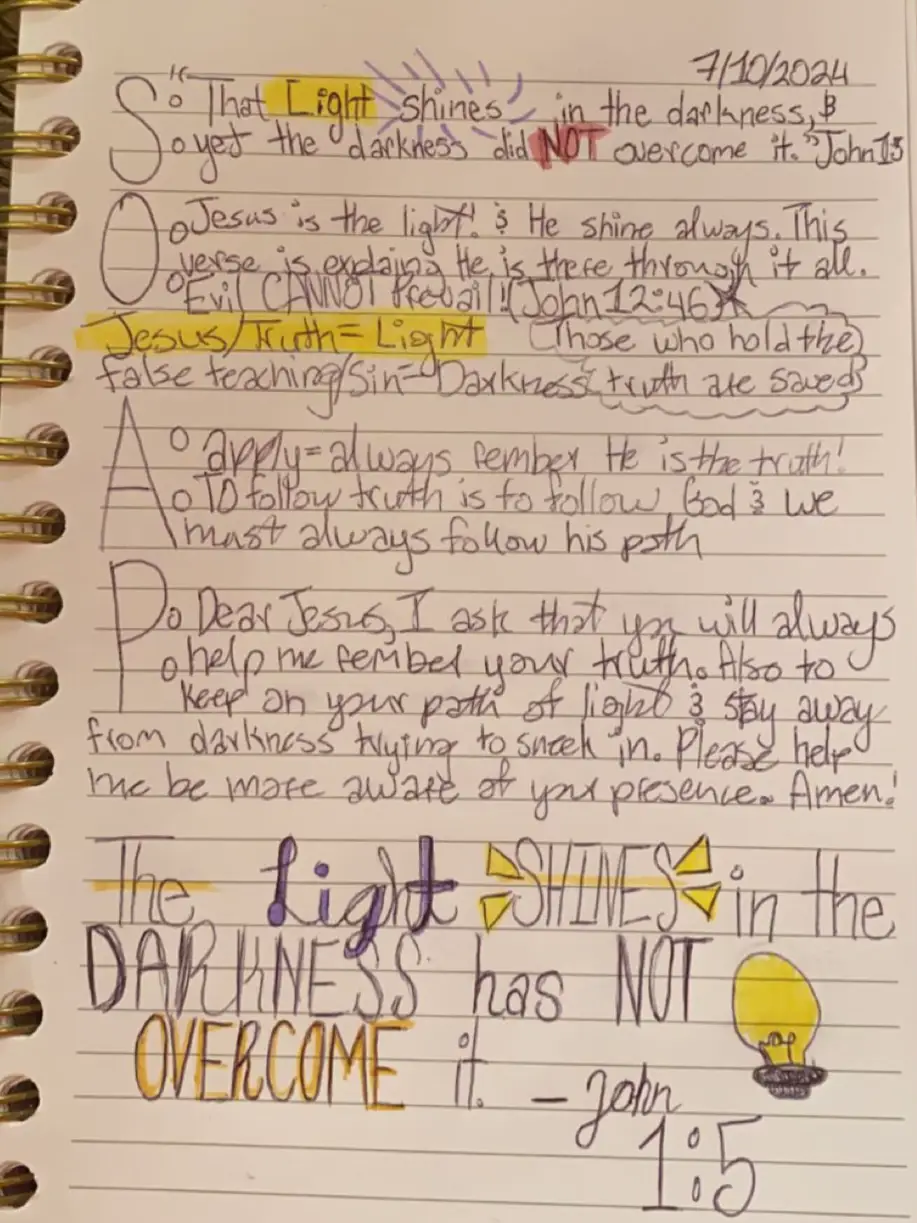 7/10/2024
S "That Light shines in the darkness, &
yet the darkness did NOT overcome it." John 1:5
O Jesus is the light! & He shine always. This
verse is explaing He is there through it all.
Evil CANNOT Prevail! (John 12:46)
Jesus/Truth = Light (Those who hold the
false teaching/Sin = Darkness truth are saved)
A apply = always rember He is the truth!
To follow truth is to follow God & we
must always follow his path
P Dear Jesus, I ask that you will always
help me rember your truth. Also to
keep on your path of light & stay away
from darkness trying to sneek in. Please help
me be more aware of your presence. Amen!
The Light SHINES in the
DARKNESS has NOT
OVERCOME it. - John
1:5